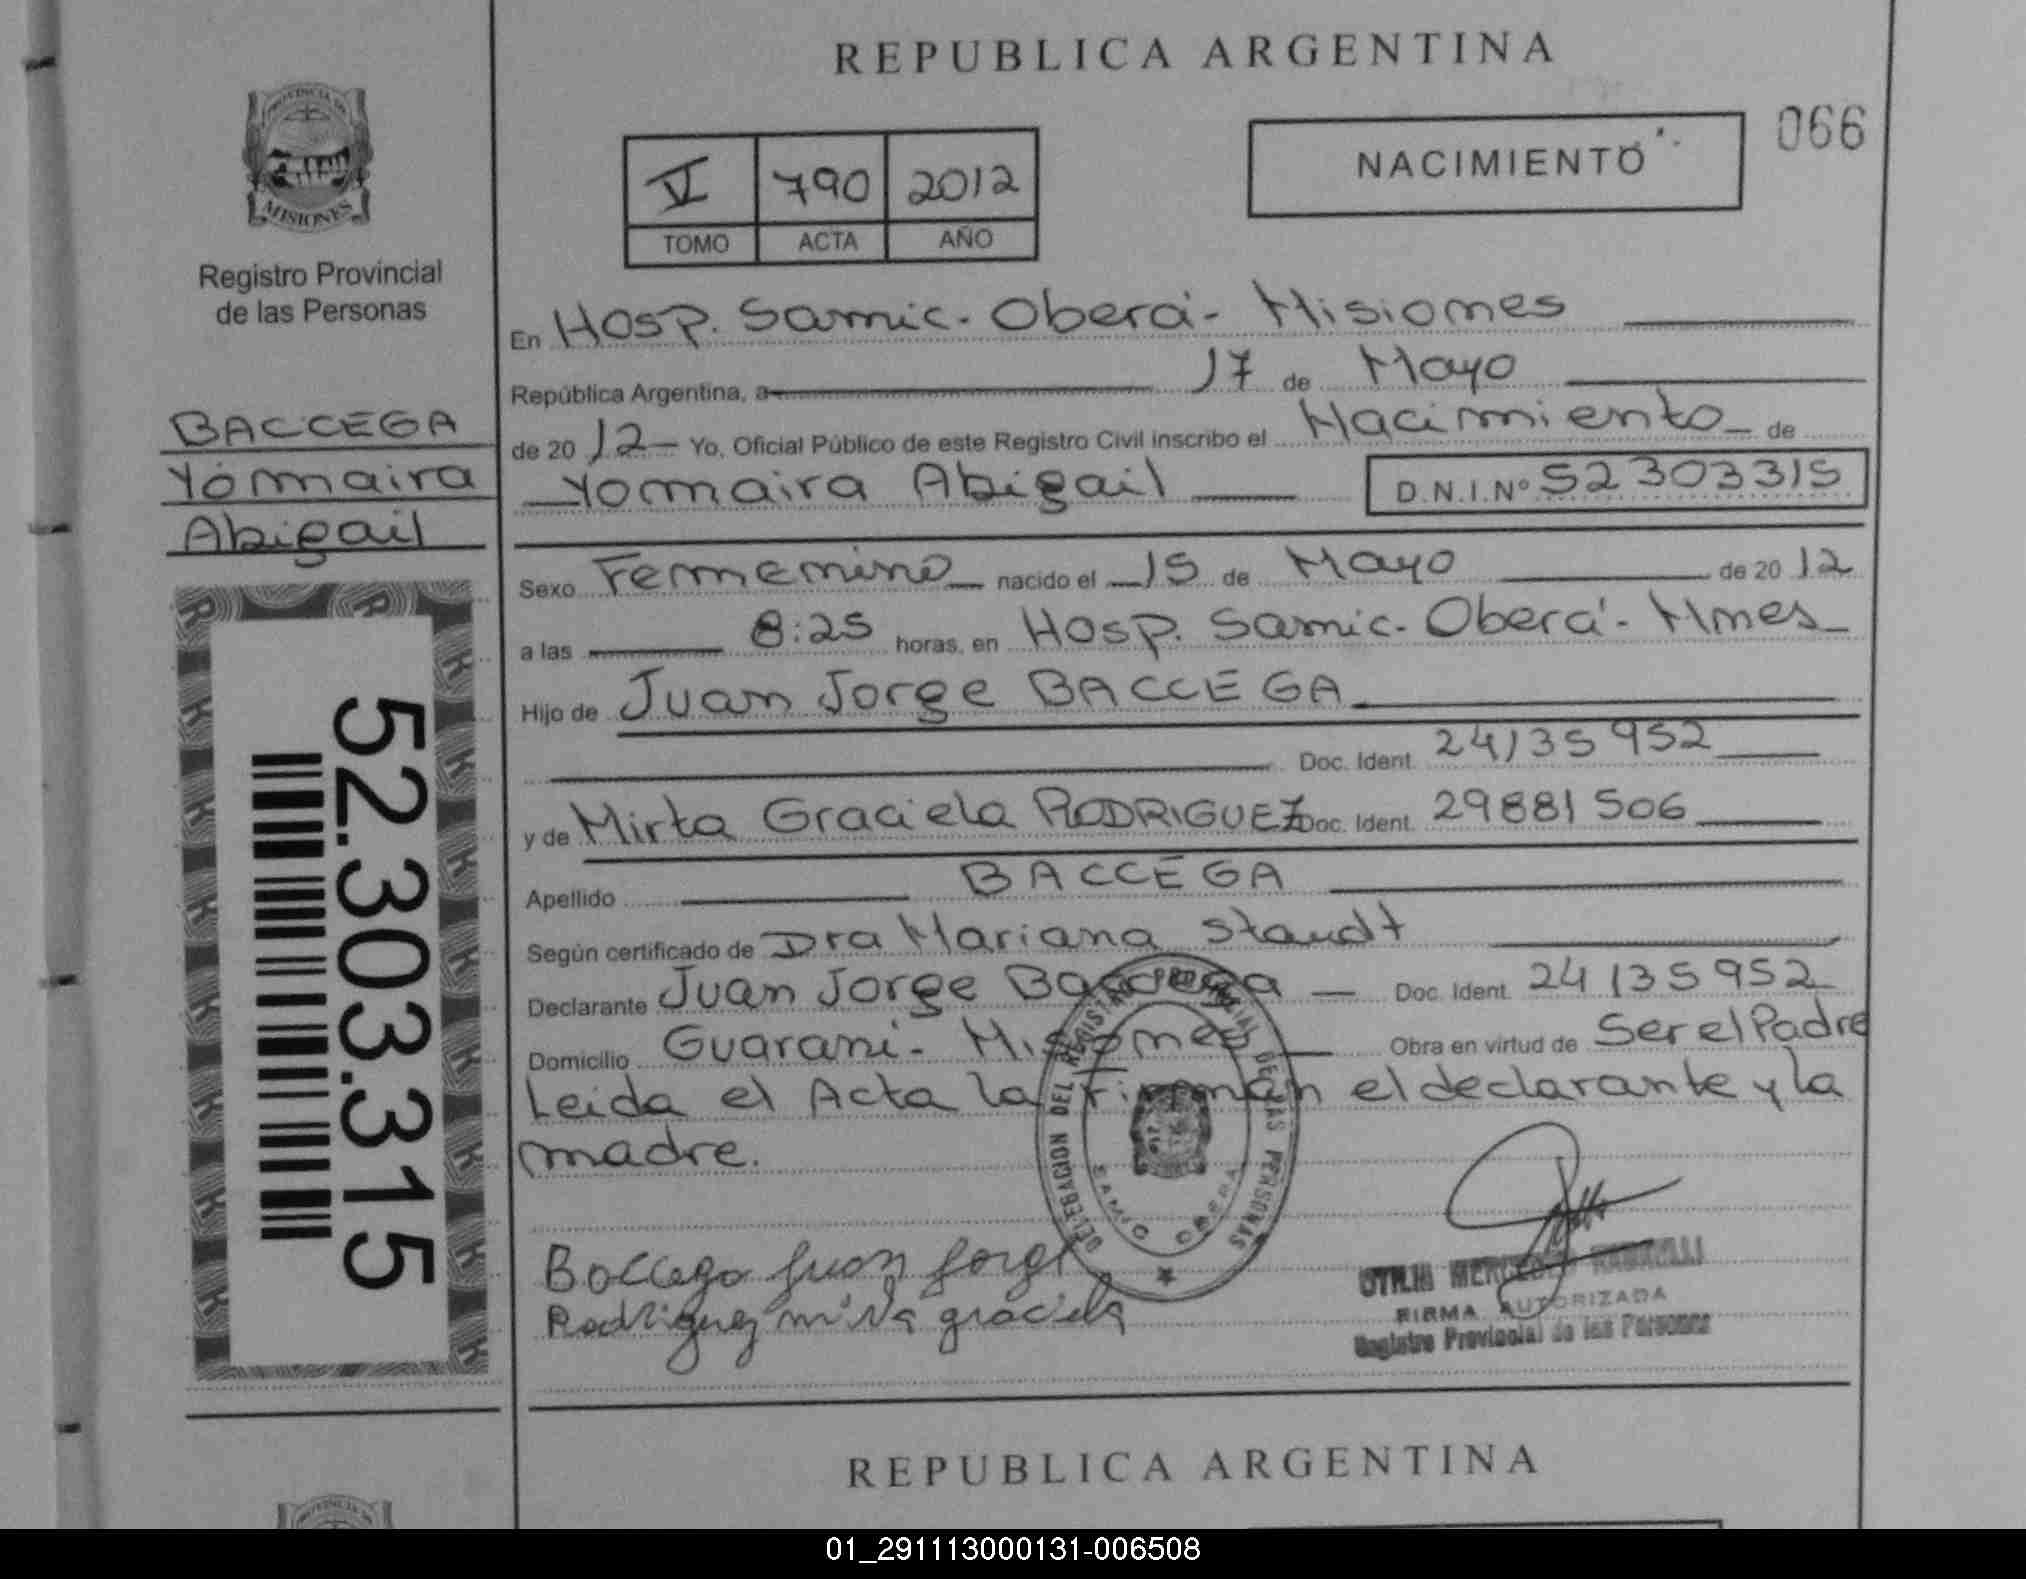 REPUBLICA ARGENTINA
PROVINCIA DE
MISIONES
Registro Provincial
de las Personas
V 790 2012
TOMO ACTA AÑO
NACIMIENTO
066
BACCEGA
Yomaira
Abigail
52.303.315
En Hosp. Samic. Oberá - Misiones
República Argentina, a 17 de Mayo
de 2012 Yo, Oficial Público de este Registro Civil inscribo el Nacimiento de
Yomaira Abigail D.N.I.Nº 52303315
Sexo Femenino nacido el 15 de Mayo de 2012
a las 8:25 horas, en Hosp. Samic. Oberá - Mnes
Hijo de Juan Jorge BACCEGA
Doc. Ident. 24135952
y de Mirta Graciela RODRIGUEZ Doc. Ident. 29881506
Apellido BACCEGA
Según certificado de Dra Mariana Staudt
Declarante Juan Jorge Baccega Doc. Ident. 24135952
Domicilio Guarani - Misiones Obra en virtud de Ser el Padre
Leida el Acta la firman el declarante y la
madre.
DELEGACION DEL REGISTRO PROVINCIAL DE LAS PERSONAS
SAMIC OBERA
Baccega Juan Jorge
Rodriguez mirta graciela
MERCEDES
FIRMA AUTORIZADA
Registro Provincial de las Personas
REPUBLICA ARGENTINA
01_291113000131-006508